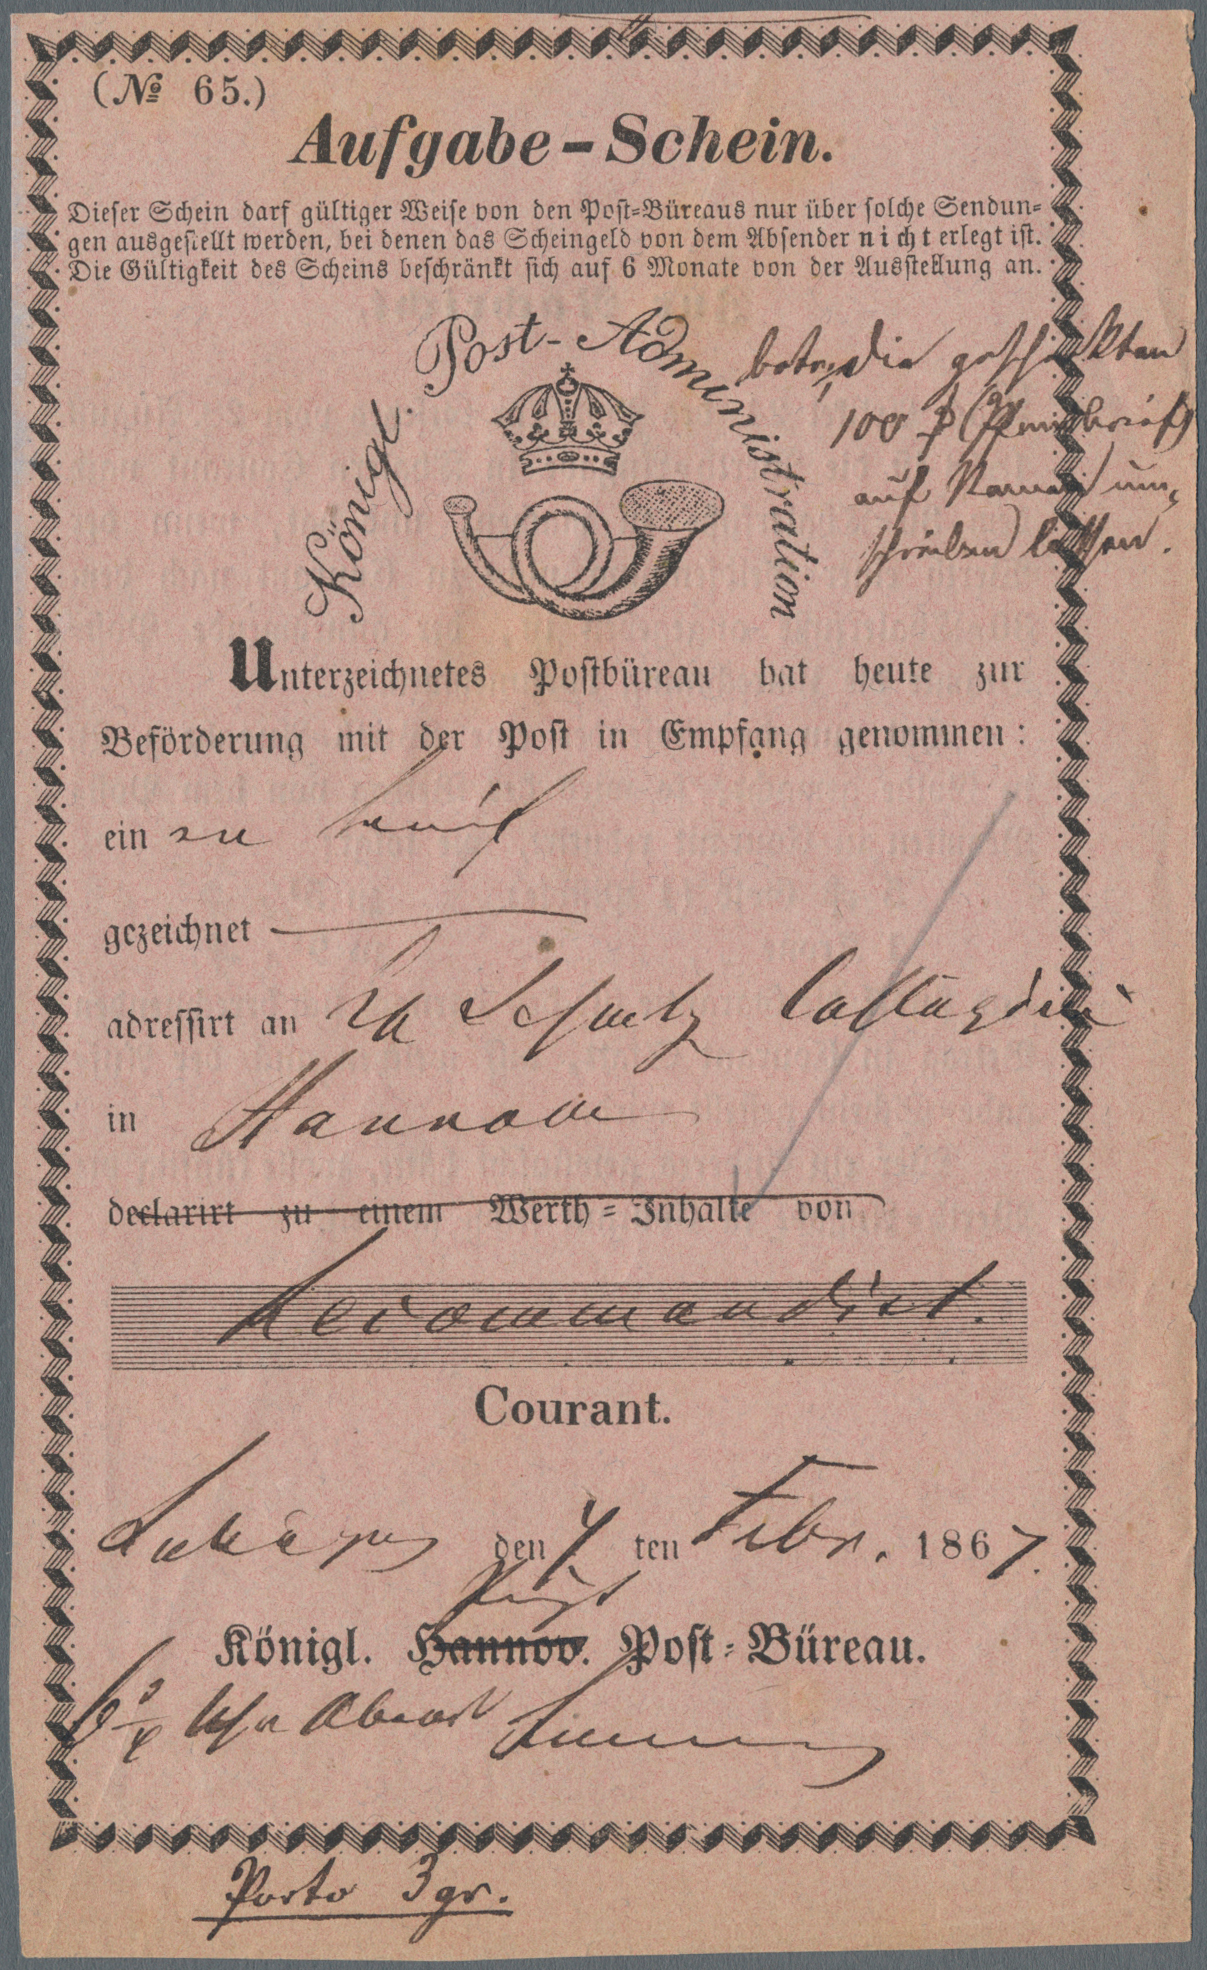 (№ 65.)
Aufgabe-Schein.
Dieser Schein darf gültiger Weise von den Post-Büreaus nur über solche Sendun-
gen ausgestellt werden, bei denen das Scheingeld von dem Absender nicht erlegt ist.
Die Gültigkeit des Scheins beschränkt sich auf 6 Monate von der Ausstellung an.
Königl. Post-Administration
die geschenkten
100
auf Namen um-
schreiben lassen.
Unterzeichnetes Postbüreau hat heute zur
Beförderung mit der Post in Empfang genommen:
ein
gezeichnet
adressirt an
in Hannover
declarirt zu einem Werth-Inhalte von
Recommandirt.
Courant.
den 7 ten Febr. 1867.
Königl. Hannov. Post-Büreau.
Uhr Abends
Porto 3 gr.